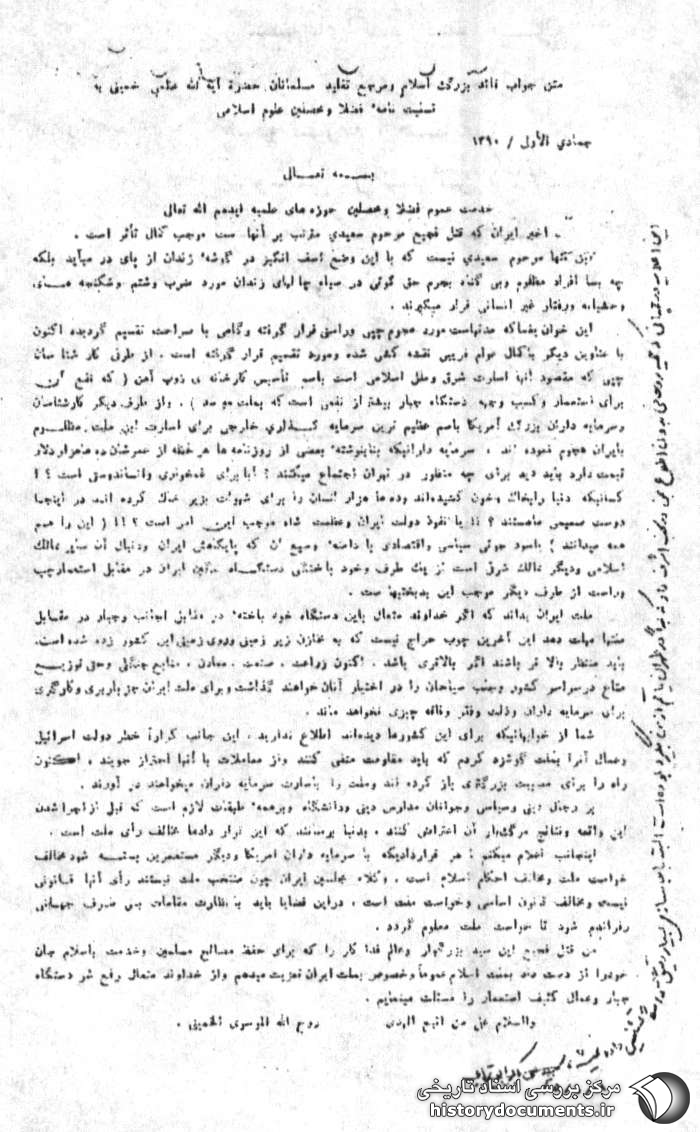 متن جواب قائد بزرگ اسلام ومرجع تقلید مسلمانان حضرة آیة الله عظمی خمینی به
تسلیت نامهٔ فضلا ومحصلین علوم اسلامی
جمادي الأول / ١٣٩٠
بسمه تعالی
خدمت عموم فضلا ومحصلین حوزه های علمیه ایدهم الله تعالی
اخیر ایران که قتل فجیع مرحوم سعیدي مترتب بر آنها ست موجب کمال تأثر است .
تنها مرحوم سعیدي نیست که با این وضع اسف انگیز در گوشهٔ زندان از پای در میآید بلکه
چه بسا افراد مظلوم وبی گناه بجرم حق گوئی در سیاه چالهای زندان مورد ضرب وشتم وشکنجه های
وحشیانه ورفتار غیر انسانی قرار میگیرند .
این خوان یغماکه مدتهاست مورد هجوم چپی وراستی قرار گرفته وگاهی با صراحت تقسیم گردیده اکنون
با عناوین دیگر باکمال عوام فریبی نقشه کشی شده ومورد تقسیم قرار گرفته است . از طرفی کار شنا سان
چپی که مقصود آنها اسارت شرق وملل اسلامی است باسم تأسیس کارخانه ی ذوب آهن ( که نفع آن
برای استعمار وکسب وجهه دستگاه جبار بیشتر از نفعی است که بملت میرسد ) . واز طرف دیگر کارشناسان
وسرمایه داران بزرگ آمریکا باسم عظیم ترین سرمایه گذاري خارجی برای اسارت این ملت مظلوم
بایران هجوم نموده اند . سرمایه دارانیکه بنابنوشتهٔ بعضی از روزنامه ها هر لحظه از عمرشان ده هزار دلار
قیمت دارد باید دید برای چه منظور در تهران اجتماع میکنند ؟ آیا برای غمخواری وانساندوستی است ؟ !
کسانیکه دنیا را بخاک وخون کشیده اند وده ها هزار انسان را برای شهوات بزیر خاک کرده اند در اینجا
دوست صمیمی ماهستند ؟ !! یا نفوذ دولت ایران وعظمت شاه موجب این امر است ؟ !! ( این را همه
همه میدانند ) یاسود جوئی سیاسی واقتصادی با دامنهٔ وسیع آن که پایگاهش ایران ودنبال آن سایر ممالک
اسلامی ودیگر ممالک شرق است از یک طرف وخود باختگی دستگاه حاکمه ایران در مقابل استعمار چپ
وراست از طرف دیگر موجب این بدبختیها ست .
ملت ایران بداند که اگر خداوند متعال باین دستگاه خود باخته در مقابل اجانب وجبار در مقابل
ملتها مهلت دهد این آخرین چوب حراج نیست که به مخازن زیر زمینی وروی زمینی این کشور زده شده است.
باید منتظر بالا تر باشند اگر بالاتری باشد . اکنون زراعت . صنعت . معادن . منابع جنگلی وحتی توزیع
متاع درسراسر کشور وجلب سیاحان را در اختیار آنان خواهند گذاشت وبرای ملت ایران جز باربری وکارگری
برای سرمایه داران وذلت وفقر وفاقه چیزی نخواهد ماند .
شما از خوابهائیکه برای این کشورها دیده‌اند اطلاع ندارید . این جانب کراراً خطر دولت اسرائیل
وعمال آنرا بملت گوشزد کردم که باید مقاومت منفی کنند واز معاملات با آنها احتراز جویند . اکنون
راه را برای مصیبت بزرگتري باز کرده اند وملت را باسارت سرمایه داران میخواهند در آورند .
بر رجال دینی وسیاسی وجوانان مدارس دینی ودانشگاه وبرهمهٔ طبقات لازم است که قبل از اجرا شدن
این واقعه ونتایج مرگ‌بار آن اعتراض کنند ، بدنیا برسانند که این قرار دادها مخالف رأی ملت است .
اینجانب اعلام میکنم : هر قراردادیکه با سرمایه داران امریکا ودیگر مستعمرین بسته شود مخالف
خواست ملت ومخالف احکام اسلام است . وکلاء مجلسین ایران چون منتخب ملت نیستند رأی آنها قانونی
نیست ومخالف قانون اساسی وخواست ملت است ، دراین قضایا باید بانظارت مقامات بی طرف جهانی
رفراندم شود تا خواست ملت معلوم گردد .
من قتل فجیع این سید بزرگوار وعالم فدا کار را که برای حفظ مصالح مسلمین وخدمت باسلام جان
خودرا از دست داد بملت اسلام عموماً وخصوص بملت ایران تعزیت میدهم واز خداوند متعال رفع شر دستگاه
جبار وعمال کثیف استعمار را مسئلت مینمایم .
والسلام علی من اتبع الهدی
روح الله الموسوي الخمیني .
مرکز بررسی اسناد تاریخی
historydocuments.ir